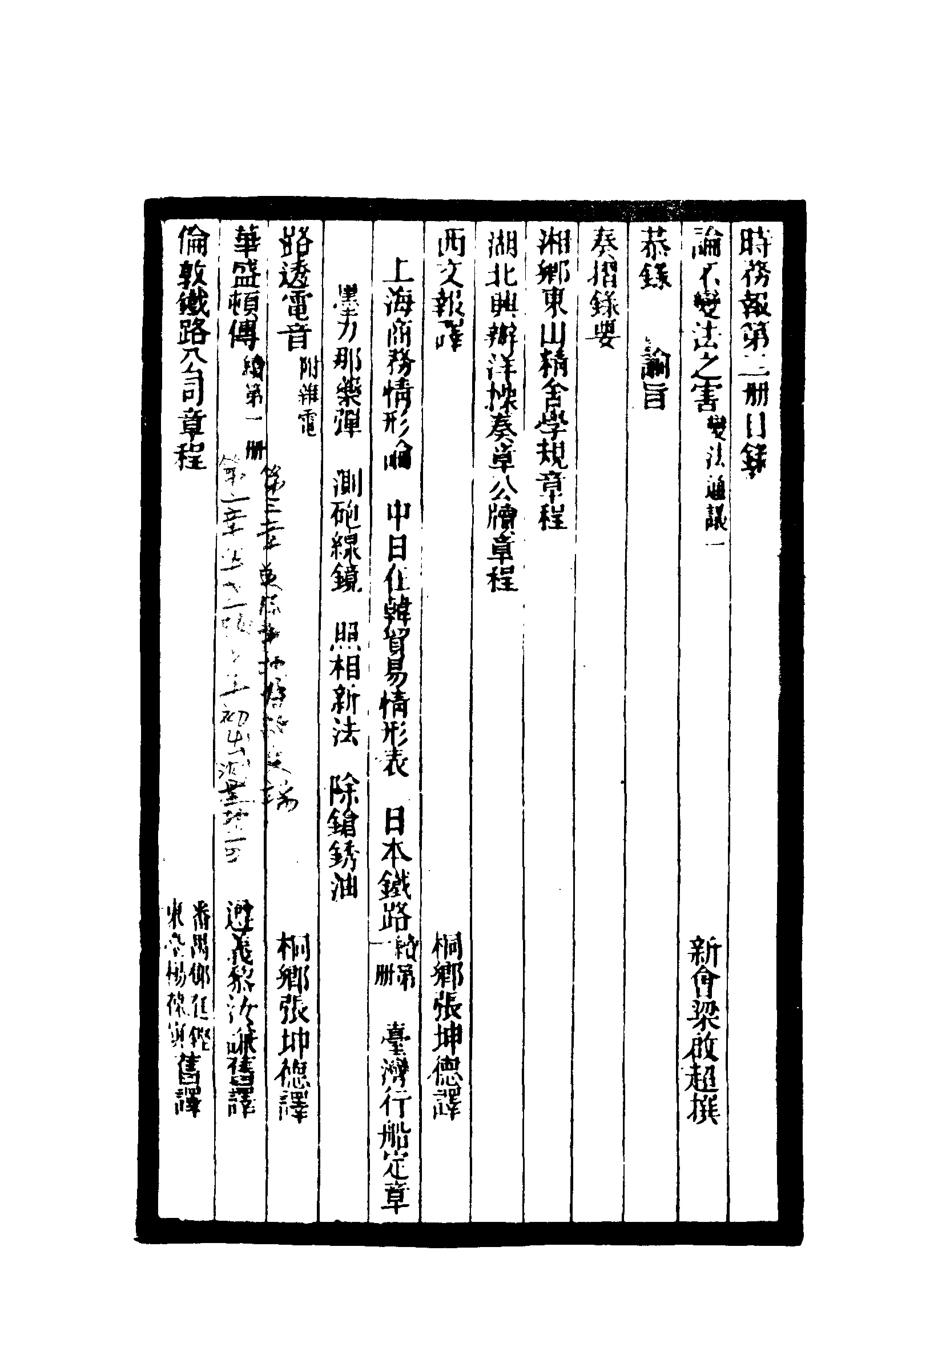 時務報第二册目錄
論不變法之害 變法通議一 新會梁啟超撰
恭錄 諭旨
奏摺錄要
湘鄉東山精舍學規章程
湖北興辦洋操奏章公牘章程
西文報譯 桐鄉張坤德譯
上海商務情形論 中日在韓貿易情形表 日本鐵路 續第一册 臺灣行船定章
墨力那藥彈 測砲線鏡 照相新法 除鎗銹油
路透電音 附雜電 桐鄉張坤德譯
第三章
華盛頓傳 續第一册 遵義黎汝謙舊譯
第二章
倫敦鐵路公司章程 番禺鄺廷鏗 東臺楊葆寅舊譯